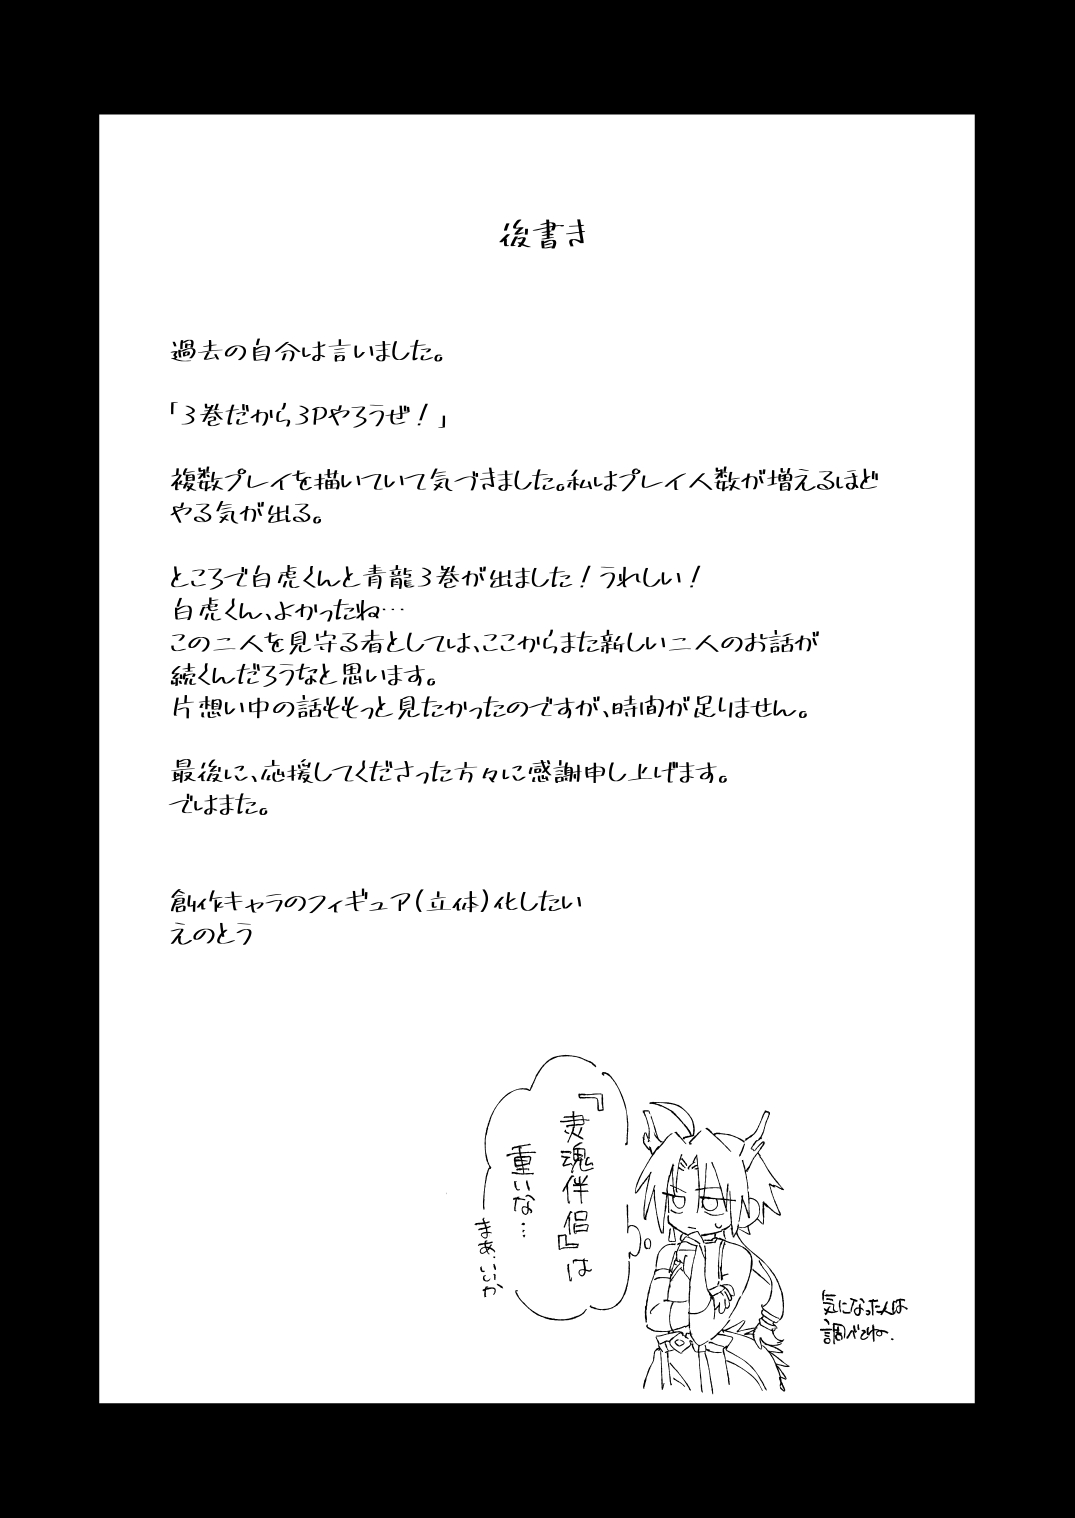 後書き
過去の自分は言いました。
「3巻だから3Pやろうぜ！」
複数プレイを描いていて気づきました。私はプレイ人数が増えるほど
やる気が出る。
ところで白虎くんと青龍3巻が出ました！うれしい！
白虎くん、よかったね…
この二人を見守る者としては、ここからまた新しい二人のお話が
続くんだろうなと思います。
片想い中の話ももっと見たかったのですが、時間が足りません。
最後に、応援してくださった方々に感謝申し上げます。
ではまた。
創作キャラのフィギュア（立体）化したい
えのとう
『灵魂伴侣』は
重いな…
まあ、いいか
気になった人は
調べてね。